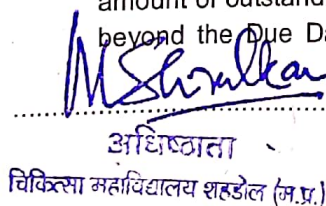 amount of outstand
beyond the Due Da
अधिष्ठाता
चिकित्सा महाविद्यालय शहडोल (म.प्र.)